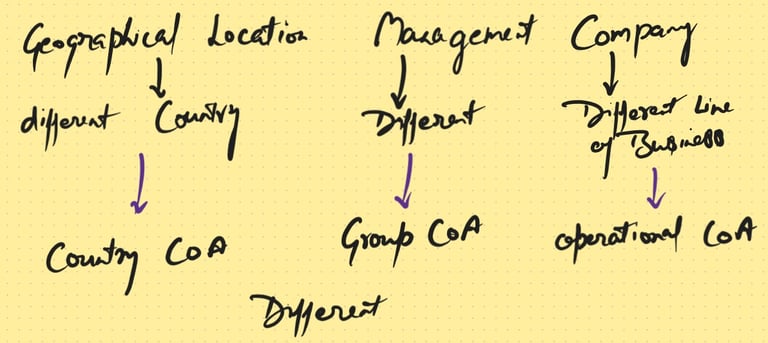 Geographical Location Management Company
different Country Different Different Line
of Business
Country CoA Group CoA operational CoA
Different